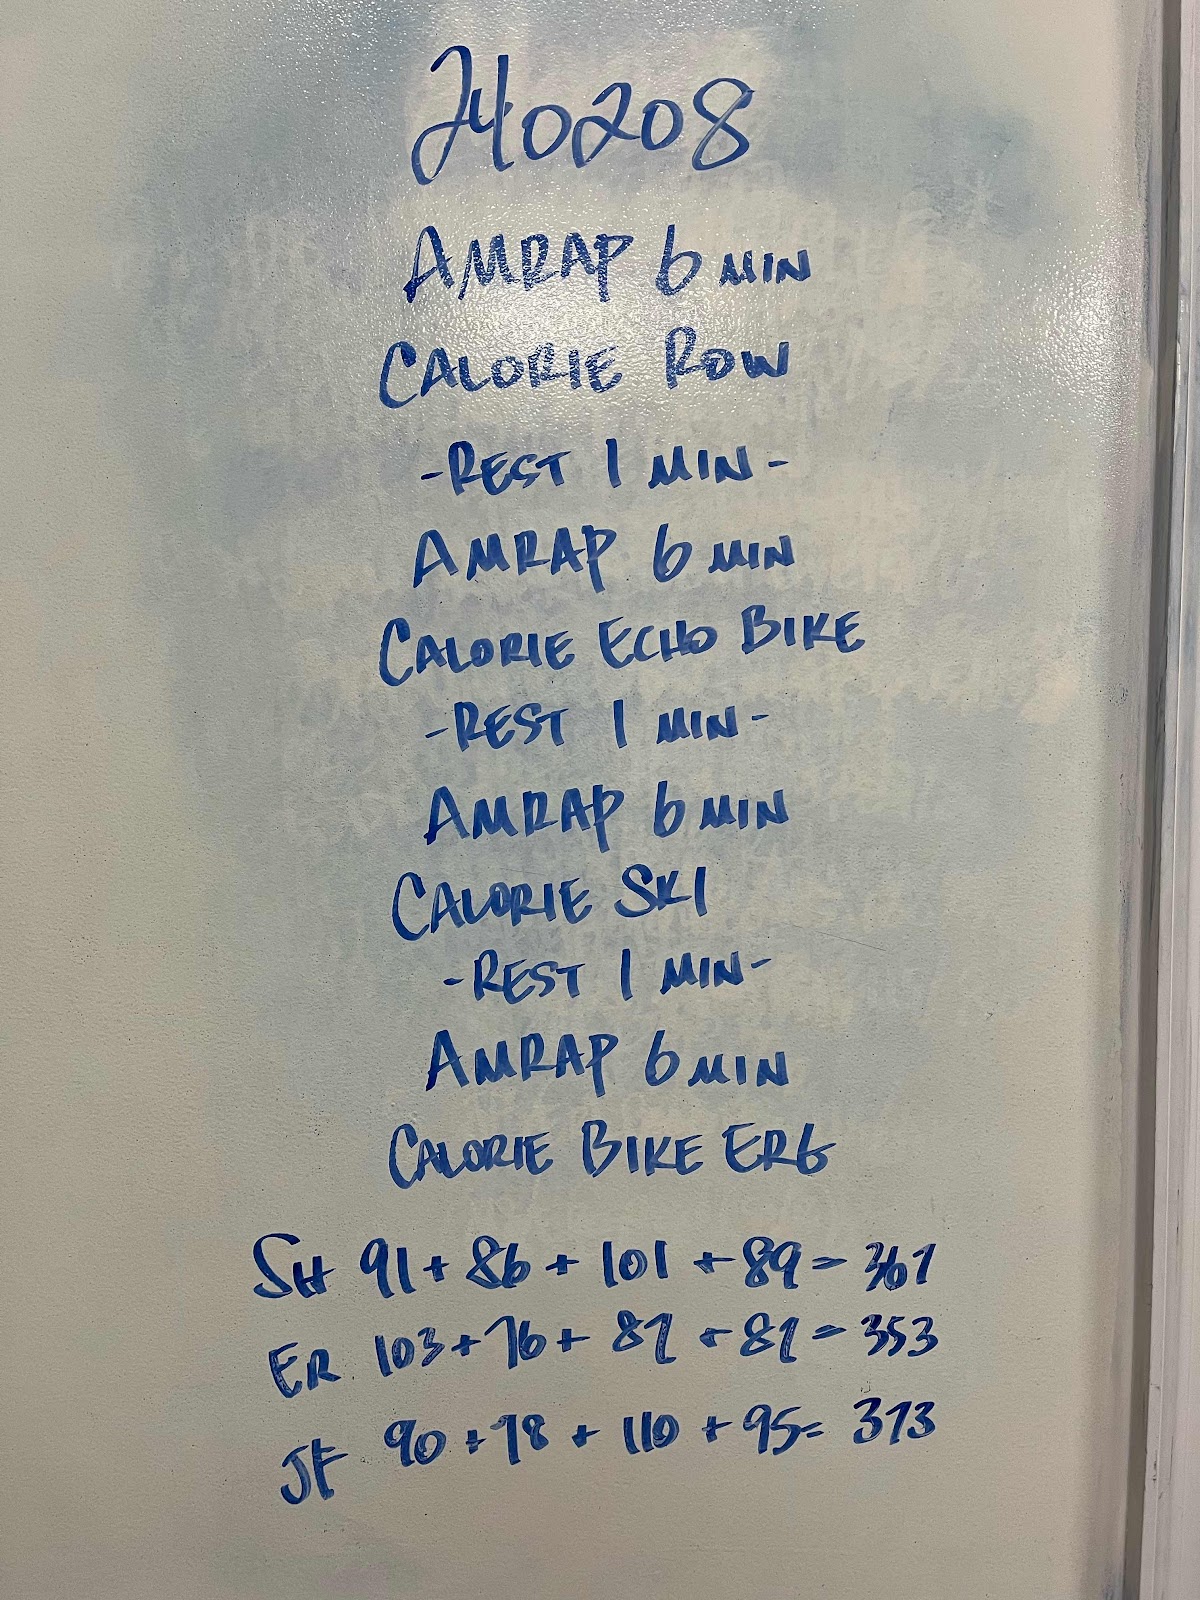 240208
AMRAP 6 MIN
CALORIE ROW
-REST 1 MIN-
AMRAP 6 MIN
CALORIE ECHO BIKE
-REST 1 MIN-
AMRAP 6 MIN
CALORIE SKI
-REST 1 MIN-
AMRAP 6 MIN
CALORIE BIKE ERG
SH 91 + 86 + 101 + 89 = 367
ER 103 + 76 + 87 + 87 = 353
JF 90 + 78 + 110 + 95 = 373